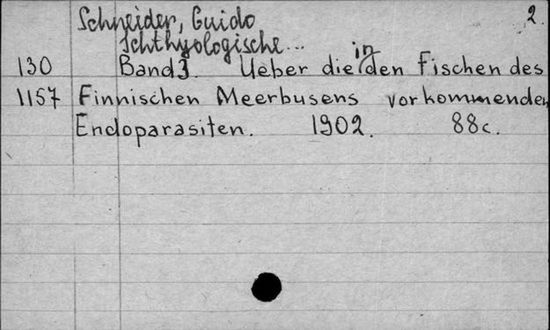 Schneider, Guido 2.
Ichthyologische...
130 Band 3. Ueber die in den Fischen des
1157 Finnischen Meerbusens vorkommenden
Endoparasiten. 1902. 88c.